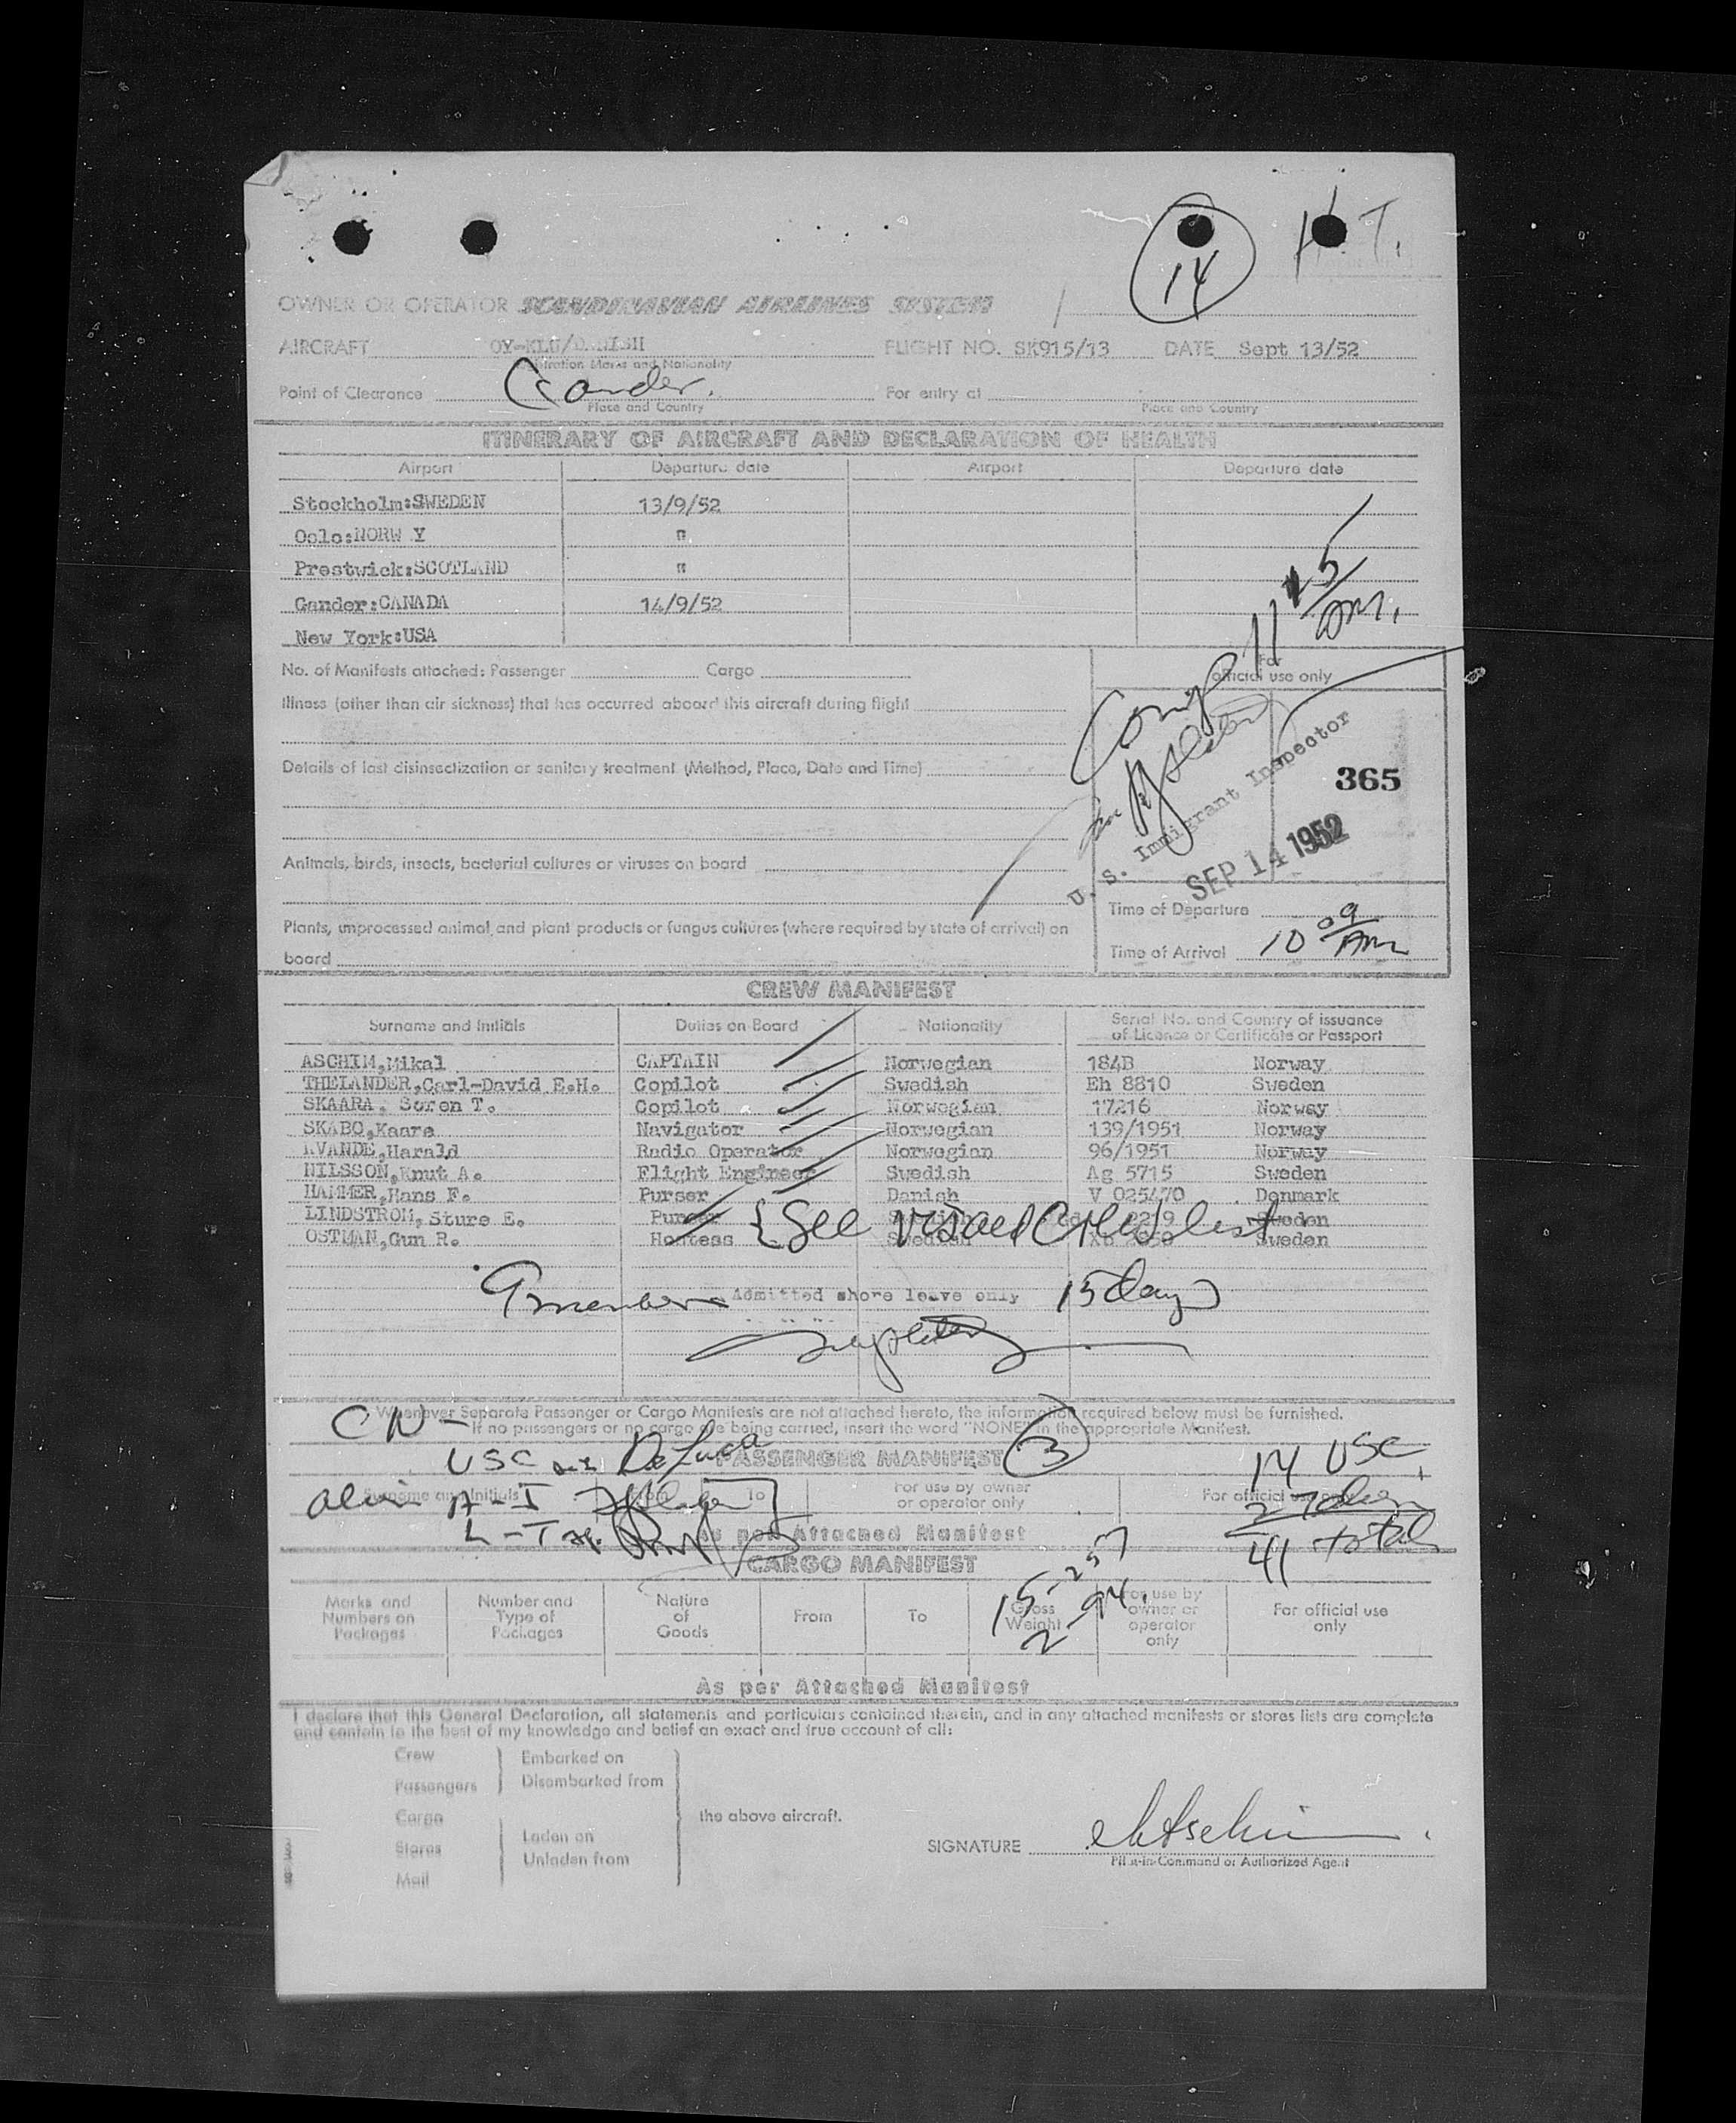 14
H.T.
OWNER OR OPERATOR SCANDINAVIAN AIRLINES SYSTEM
AIRCRAFT OY-KLU/DANISH FLIGHT NO. SK915/13 DATE Sept 13/52
Registration Marks and Nationality
Point of Clearance Gander. For entry at
Place and Country Place and Country
ITINERARY OF AIRCRAFT AND DECLARATION OF HEALTH
Airport Departure date Airport Departure date
Stockholm:SWEDEN 13/9/52
Oslo:NORW Y "
Prestwick:SCOTLAND "
Gander:CANADA 14/9/52
New York:USA
11 25 am.
No. of Manifests attached: Passenger Cargo
For official use only
Illness (other than air sickness) that has occurred aboard this aircraft during flight
Details of last disinsectization or sanitary treatment (Method, Place, Date and Time)
U. S. Immigrant Inspector
365
SEP 14 1952
Animals, birds, insects, bacterial cultures or viruses on board
Time of Departure
Plants, unprocessed animal and plant products or fungus cultures (where required by state of arrival) on
board
Time of Arrival 10 09 AM
CREW MANIFEST
Surname and Initials Duties on Board Nationality Serial No. and Country of issuance of Licence or Certificate or Passport
ASCHIM,Mikal CAPTAIN Norwegian 184B Norway
THELANDER,Carl-David E.H. Copilot Swedish Eh 8810 Sweden
SKAARA. Soren T. Copilot Norwegian 17216 Norway
SKABO,Kaare Navigator Norwegian 139/1951 Norway
KVANDE,Harald Radio Operator Norwegian 96/1951 Norway
NILSSON,Knut A. Flight Engineer Swedish Ag 5715 Sweden
HAMMER,Hans F. Purser Danish V 025470 Denmark
LINDSTROM,Sture E. Purser Swedish Sweden
OSTMAN,Gun R. Hostess Swedish Sweden
{See visaed Crew list
9 members Admitted shore leave only 15 days
Whenever Separate Passenger or Cargo Manifests are not attached hereto, the information required below must be furnished.
If no passengers or no cargo are being carried, insert the word "NONE" in the appropriate Manifest.
CN-
USC DeLuca
PASSENGER MANIFEST
3
14 USC
Surname and Initials From To For use by owner or operator only For official use only
A-I
27 alien
As per Attached Manifest
41 total
CARGO MANIFEST
15-257
2-94.
Marks and Numbers on Packages Number and Type of Packages Nature of Goods From To Gross Weight For use by owner or operator only For official use only
As per Attached Manifest
I declare that this General Declaration, all statements and particulars contained therein, and in any attached manifests or stores lists are complete
and contain to the best of my knowledge and belief an exact and true account of all:
Crew Embarked on
Passengers Disembarked from
Cargo the above aircraft.
Stores Laden on
Mail Unladen from
SIGNATURE
Pilot-in-Command or Authorized Agent